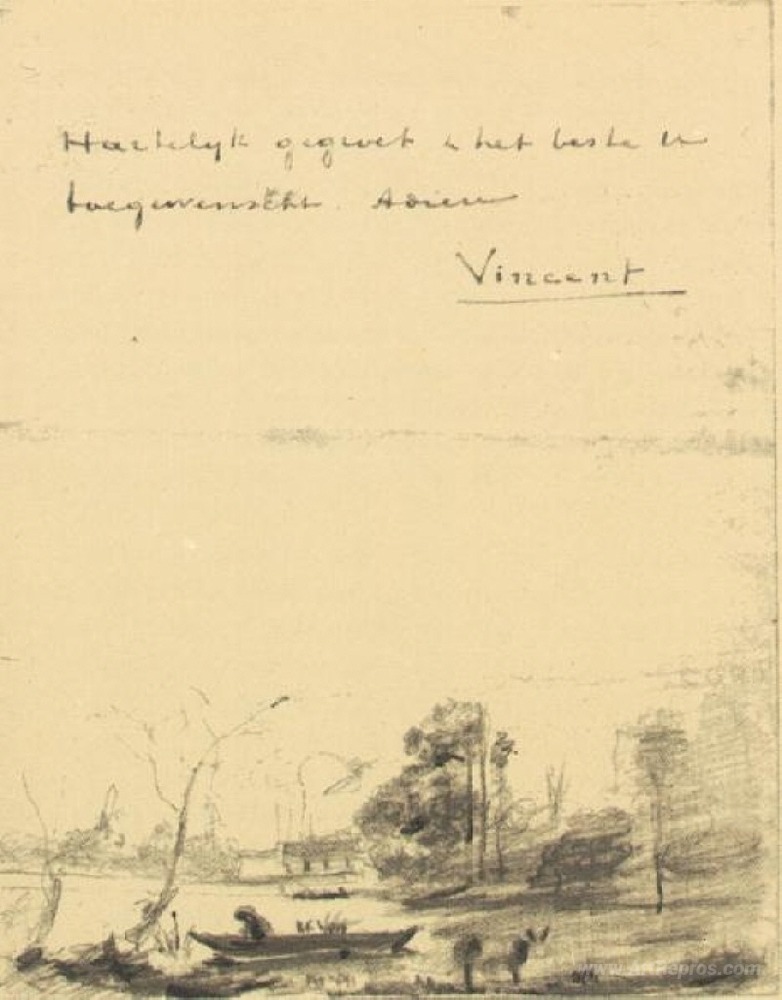 Hartelyk gegroet & het beste U
toegewenscht. Adieu
Vincent
www.ArtRepros.com